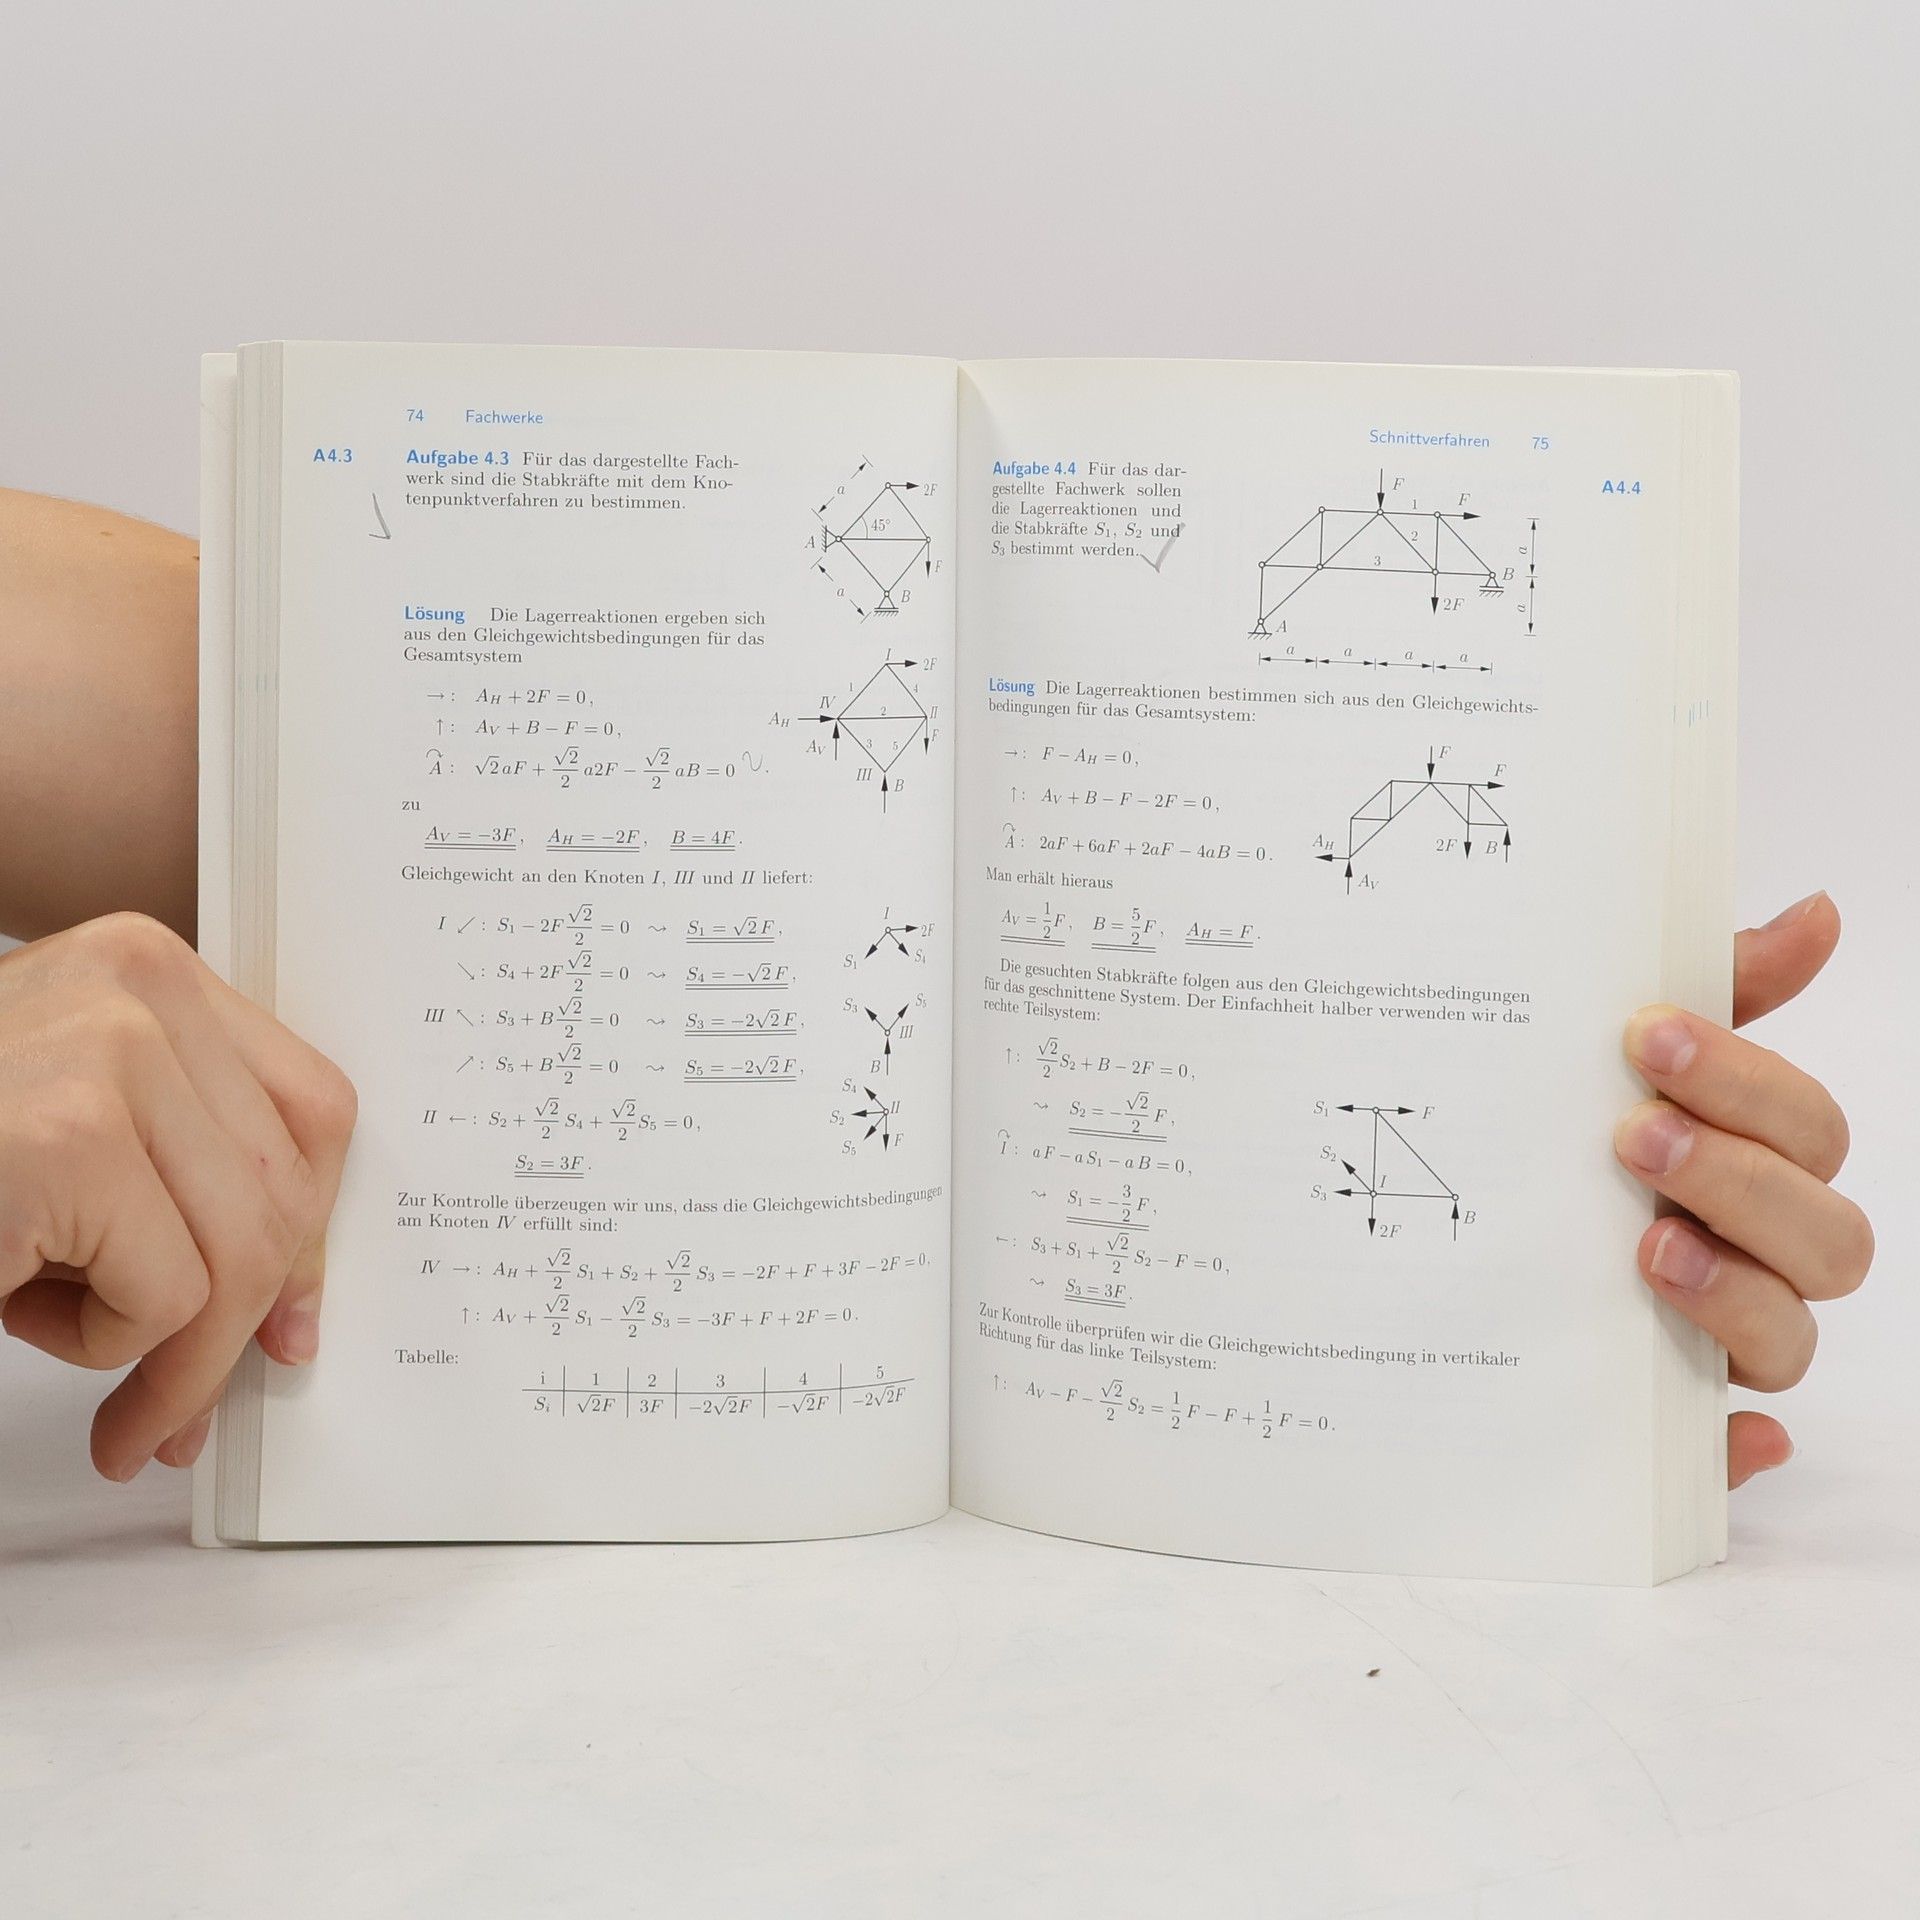 74 Fachwerke
A4.3
Aufgabe 4.3 Für das dargestellte Fach-
werk sind die Stabkräfte mit dem Kno-
tenpunktverfahren zu bestimmen.
a
2F
45°
A
F
a
B
Lösung Die Lagerreaktionen ergeben sich
aus den Gleichgewichtsbedingungen für das
Gesamtsystem
→: A_H + 2F = 0,
↑: A_V + B − F = 0,
A: √2 aF + √2/2 a2F − √2/2 aB = 0
I
2F
1
4
IV
2
II
A_H
A_V
3
5
F
III
B
zu
A_V = −3F, A_H = −2F, B = 4F.
Gleichgewicht an den Knoten I, III und II liefert:
I ↙: S₁ − 2F √2/2 = 0 ⇝ S₁ = √2 F,
↘: S₄ + 2F √2/2 = 0 ⇝ S₄ = −√2 F,
III ↖: S₃ + B √2/2 = 0 ⇝ S₃ = −2√2 F,
↗: S₅ + B √2/2 = 0 ⇝ S₅ = −2√2 F,
II ←: S₂ + √2/2 S₄ + √2/2 S₅ = 0,
S₂ = 3F.
I
2F
S₁
S₄
S₃
S₅
III
B
S₄
II
S₂
S₅
F
Zur Kontrolle überzeugen wir uns, dass die Gleichgewichtsbedingungen
am Knoten IV erfüllt sind:
IV →: A_H + √2/2 S₁ + S₂ + √2/2 S₃ = −2F + F + 3F − 2F = 0,
↑: A_V + √2/2 S₁ − √2/2 S₃ = −3F + F + 2F = 0.
Tabelle:
i 1 2 3 4 5
Sᵢ √2F 3F −2√2F −√2F −2√2F
Schnittverfahren 75
A4.4
Aufgabe 4.4 Für das dar-
gestellte Fachwerk sollen
die Lagerreaktionen und
die Stabkräfte S₁, S₂ und
S₃ bestimmt werden.
F
1
F
2
3
a
B
2F
a
A
a a a a
Lösung Die Lagerreaktionen bestimmen sich aus den Gleichgewichts-
bedingungen für das Gesamtsystem:
→: F − A_H = 0,
↑: A_V + B − F − 2F = 0,
A: 2aF + 6aF + 2aF − 4aB = 0.
F
F
A_H
2F
B
A_V
Man erhält hieraus
A_V = 1/2 F, B = 5/2 F, A_H = F.
Die gesuchten Stabkräfte folgen aus den Gleichgewichtsbedingungen
für das geschnittene System. Der Einfachheit halber verwenden wir das
rechte Teilsystem:
↑: √2/2 S₂ + B − 2F = 0,
⇝ S₂ = −√2/2 F,
I: aF − aS₁ − aB = 0,
⇝ S₁ = −3/2 F,
←: S₃ + S₁ + √2/2 S₂ − F = 0,
⇝ S₃ = 3F.
S₁
F
S₂
I
S₃
B
2F
Zur Kontrolle überprüfen wir die Gleichgewichtsbedingung in vertikaler
Richtung für das linke Teilsystem:
↑: A_V − F − √2/2 S₂ = 1/2 F − F + 1/2 F = 0.